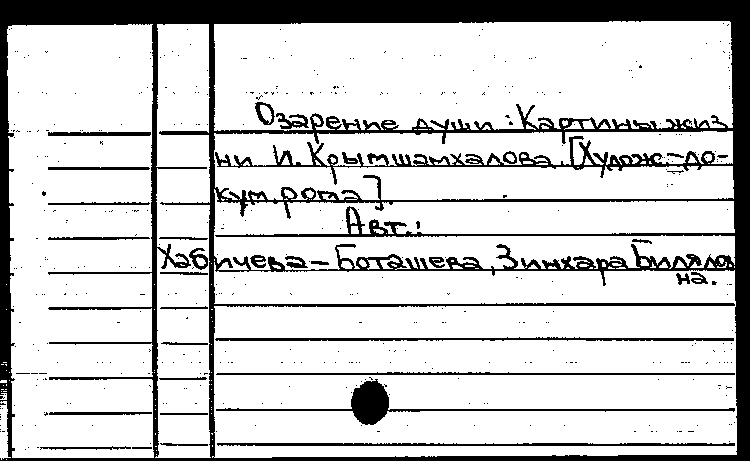 Озарение души : Картины жиз
ни И. Крымшамхалова. [Худож.-до-
кум. рома].
Авт.:
Хабичева-Боташева, Зинхара Билялов
на.